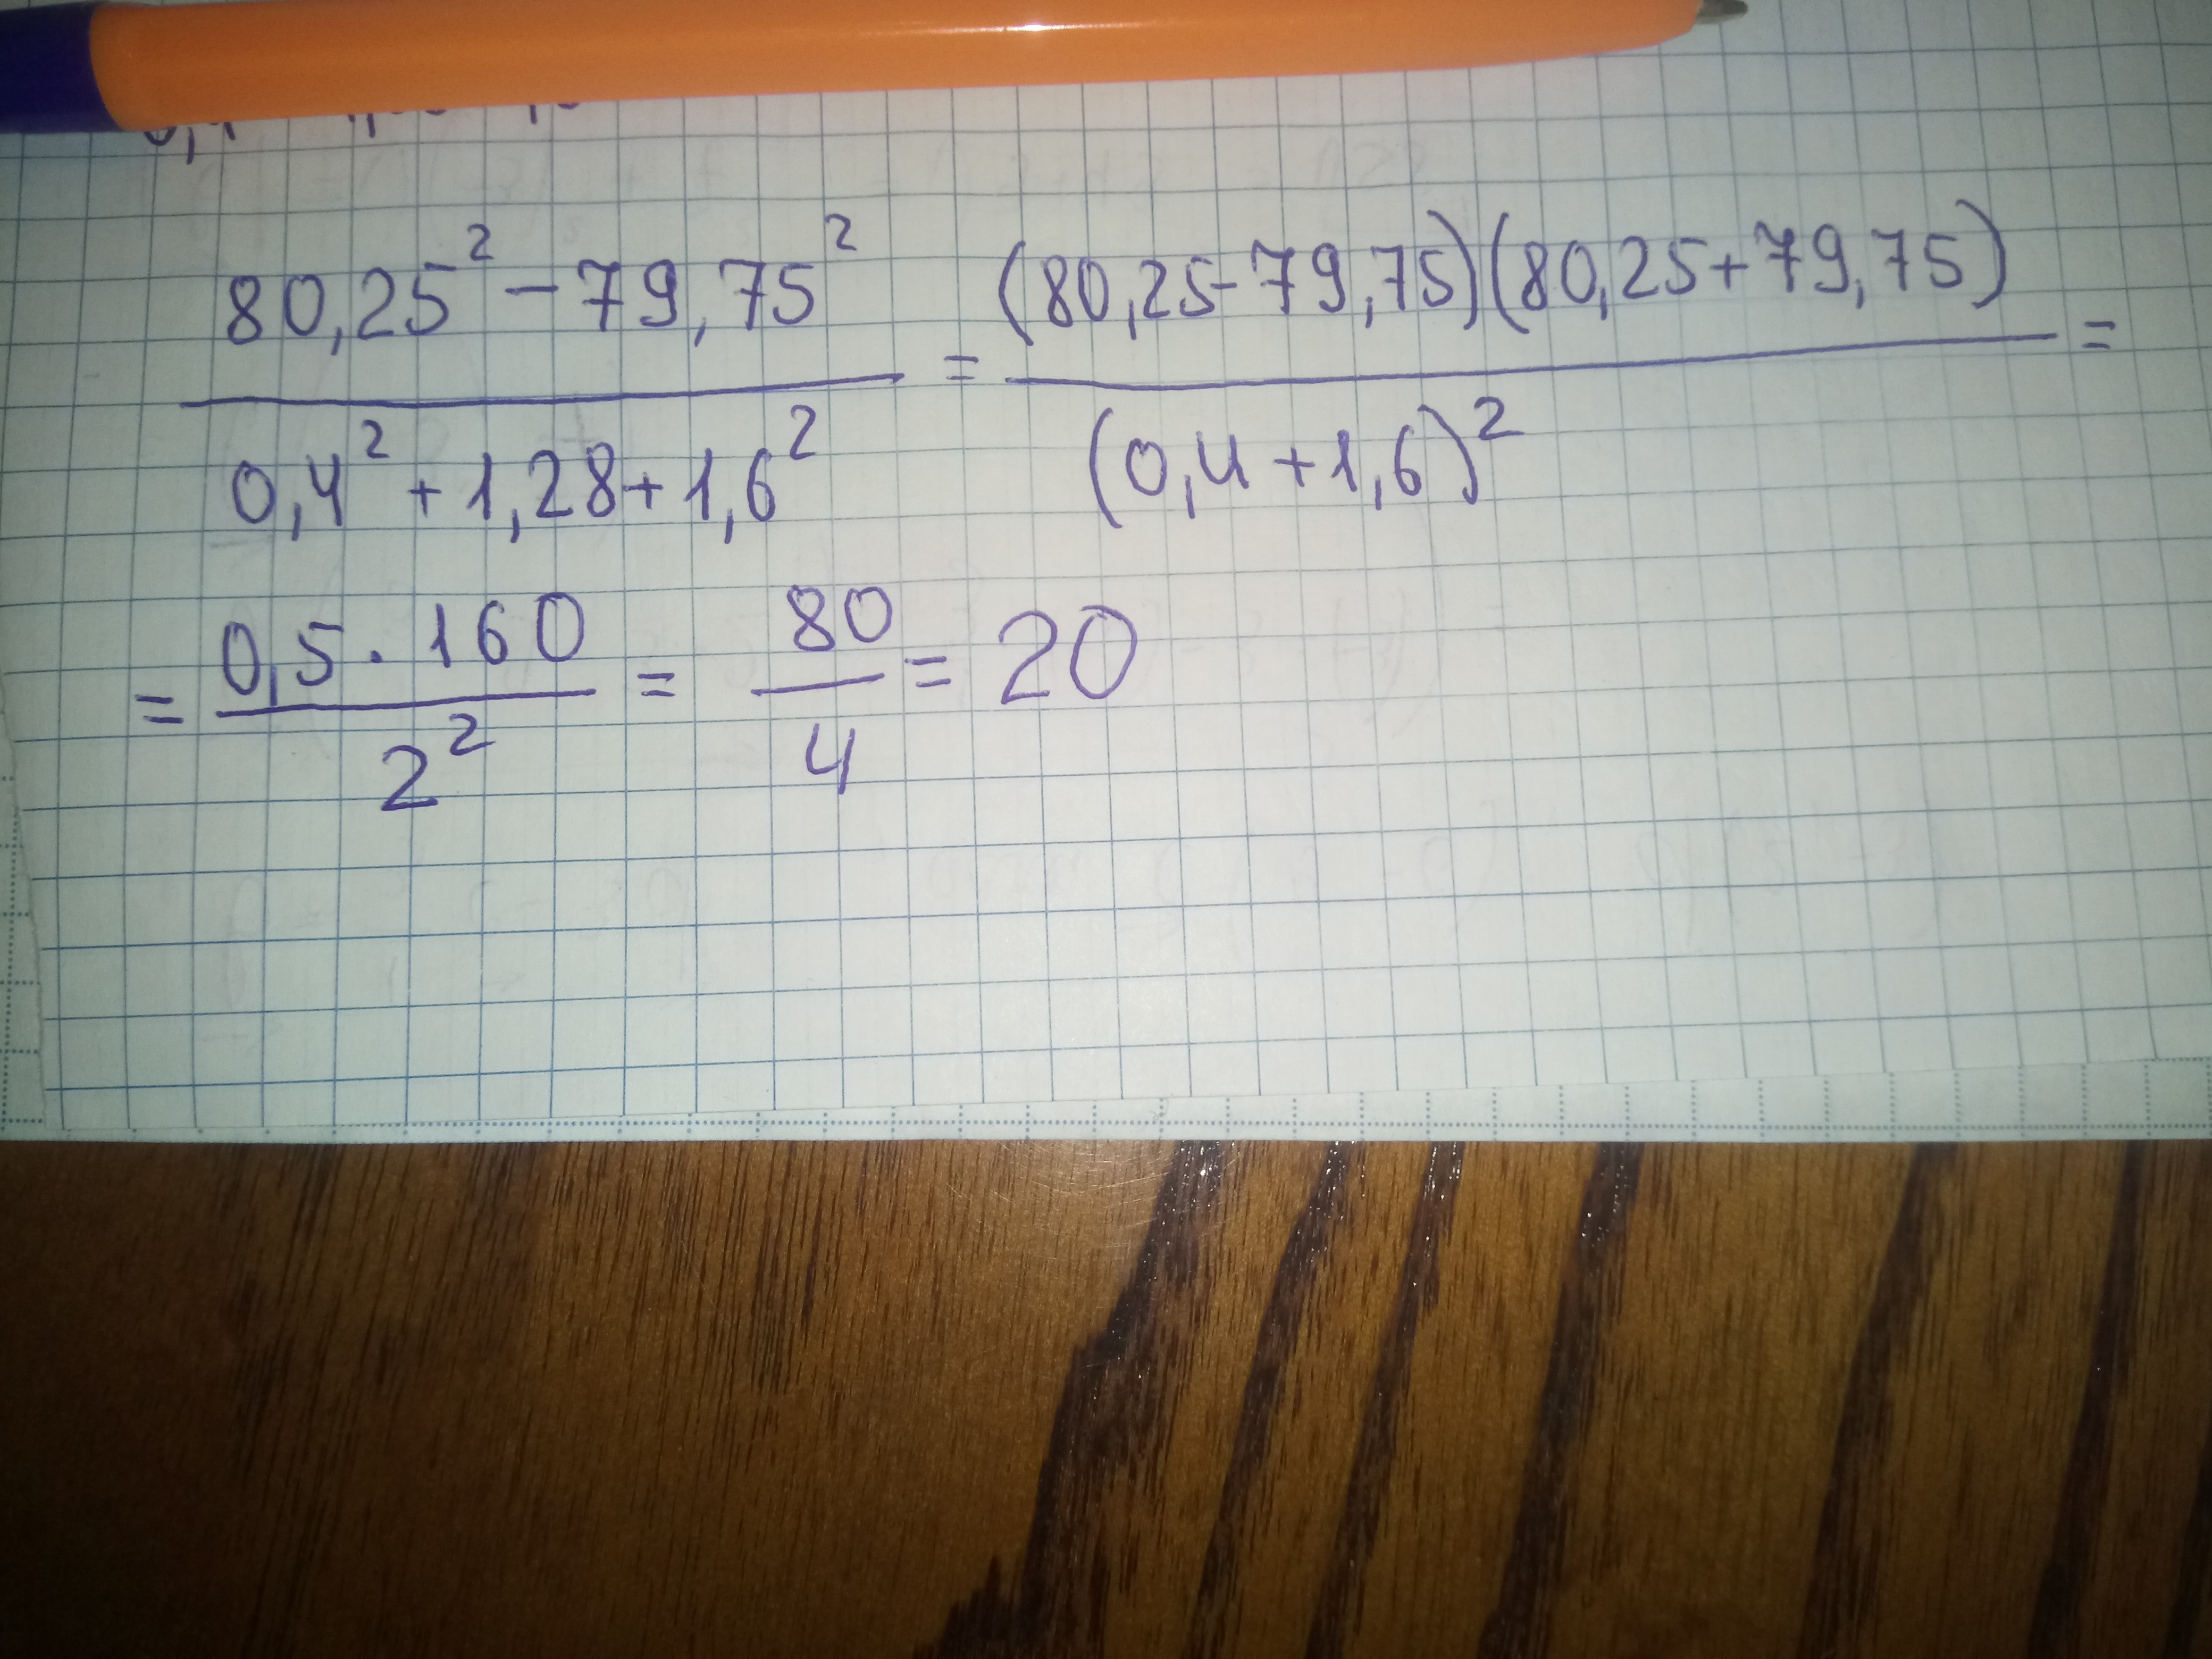 80,25² - 79,75² / 0,4² + 1,28 + 1,6² = (80,25 - 79,75)(80,25 + 79,75) / (0,4 + 1,6)² =
= 0,5 · 160 / 2² = 80 / 4 = 20